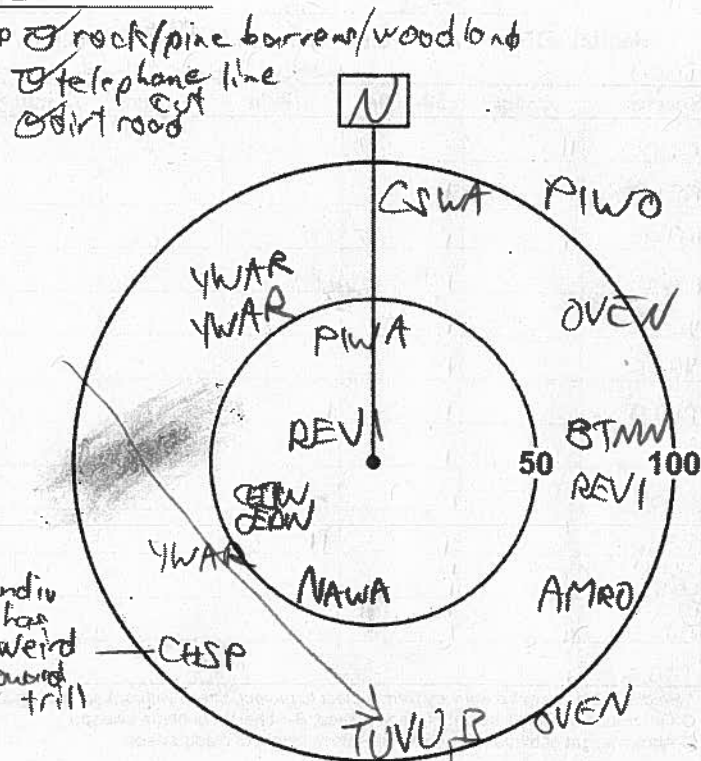 rock/pine barrens/woodland
telephone line
cut
dirt road
N
CSWA
PIWO
YWAR
YWAR
PIWA
OVEN
REVI
BTNW
50
100
REVI
YWAR
NAWA
AMRO
indiv
has
weird
trill
CHSP
OVEN
TUVU